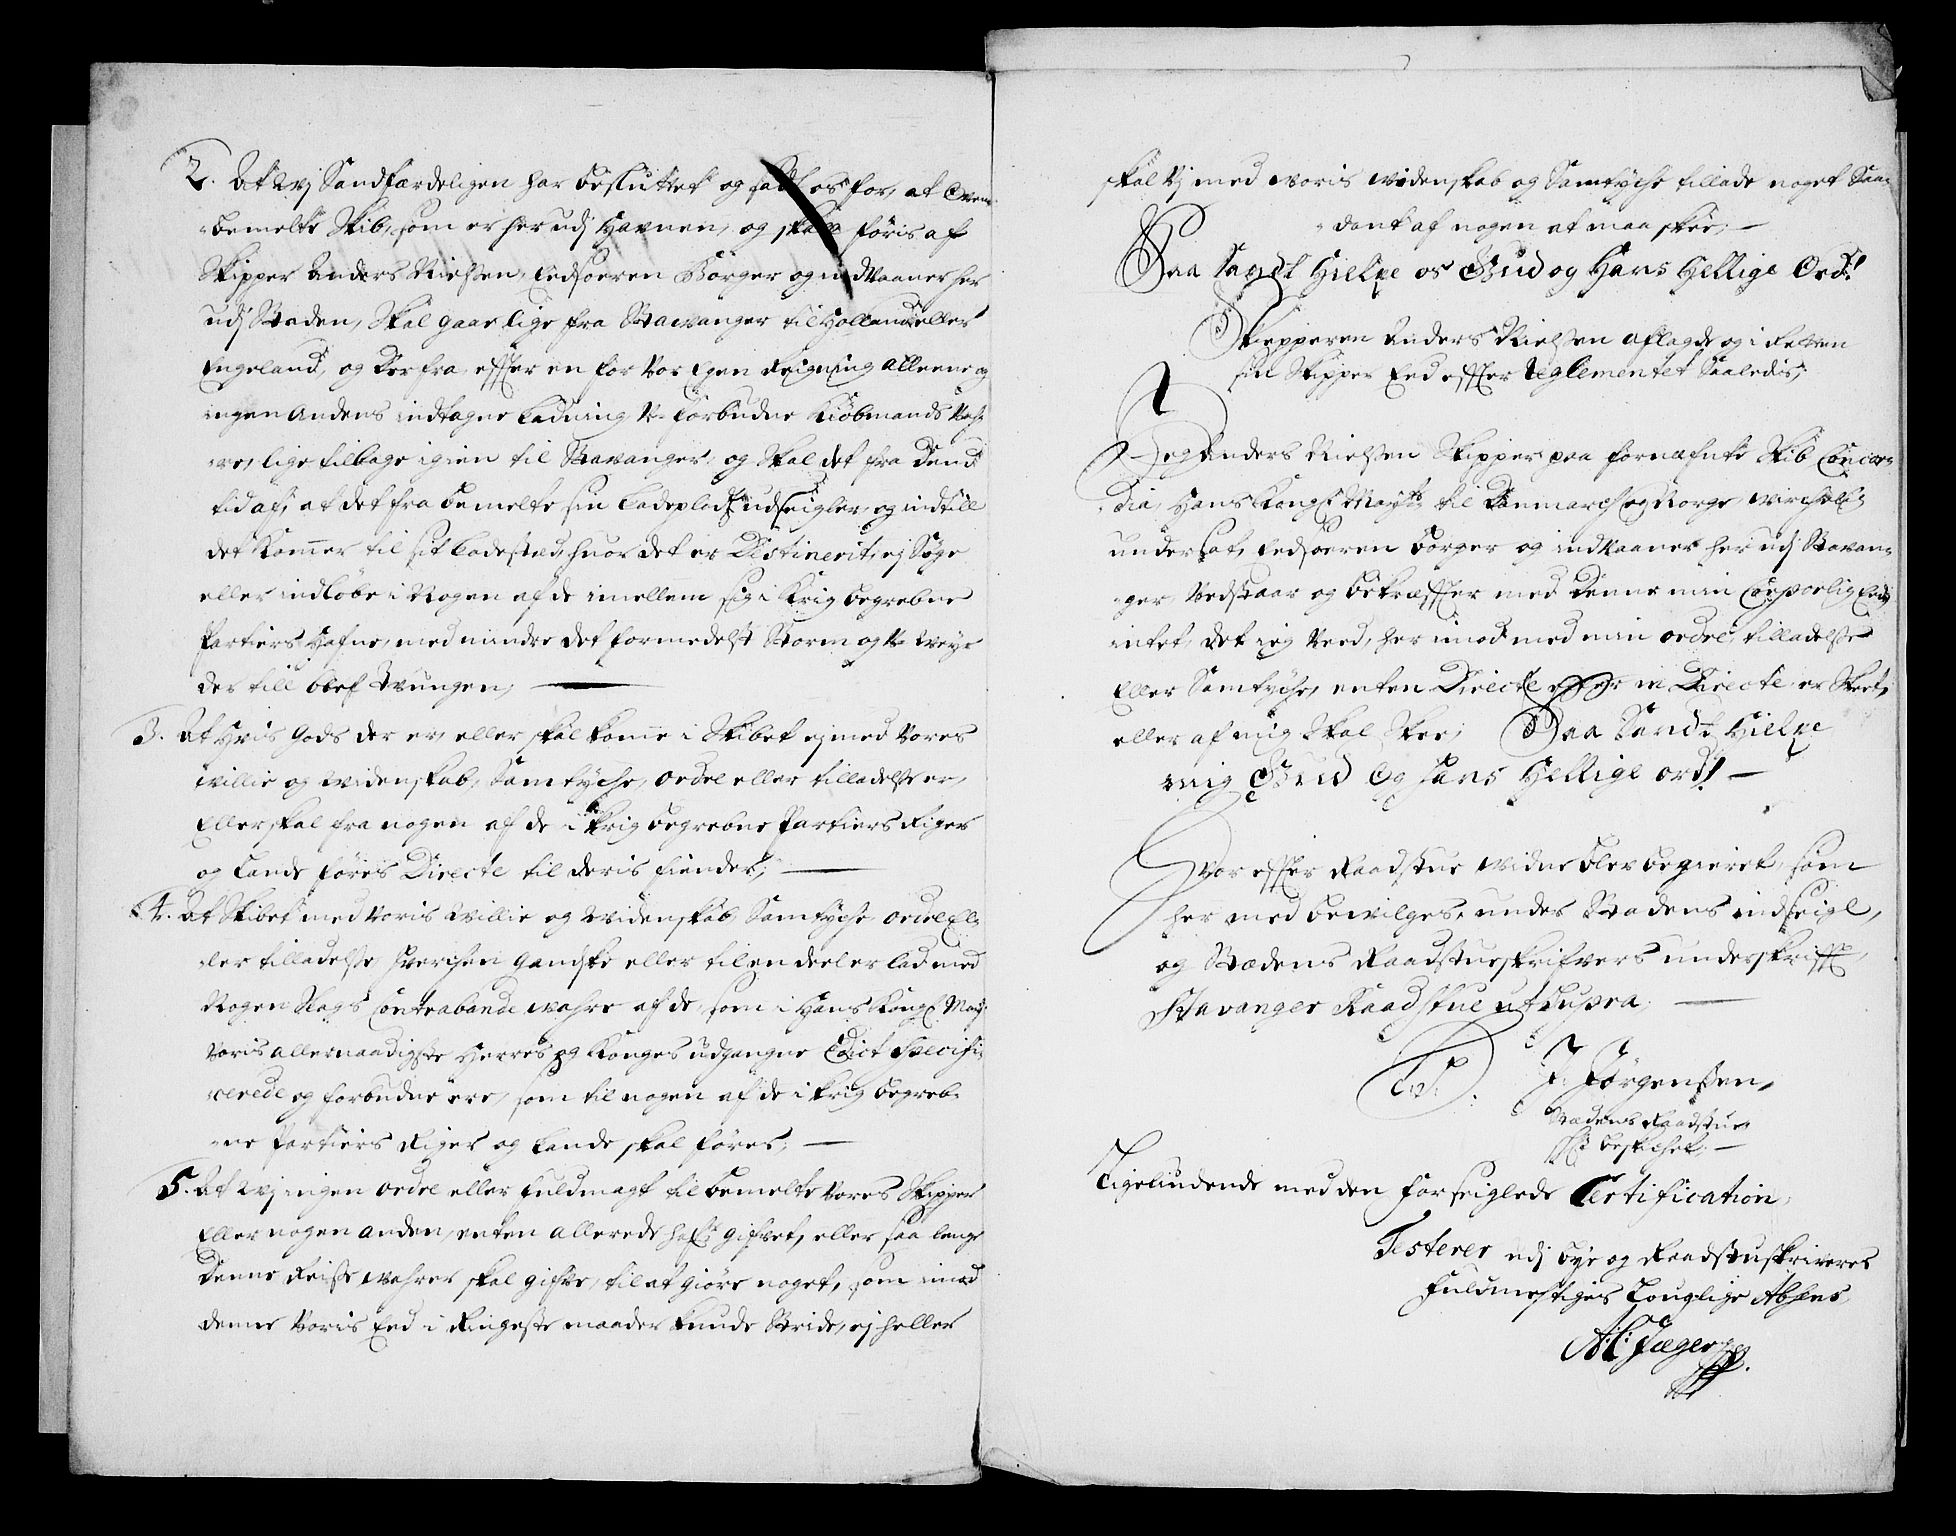 2. At Wj Sandfærdeligen har besluttet og satt os for, at Oven-
-bemelte Skib, som er her udj Havnen, og skal føris af
Skipper Anders Nielsen, Eedsoeren Borger og indvaaner her
udj Staden, Skal gaae lige fra Stavanger til Holland eller
Engeland, og der fra, effter en for Vor Egen Reigning alleene og
ingen Andens indtagne Ladning U-forbudne Kiøbmands Vah-
-re, lige tilbage igien til Stavanger, og Skal det fra dend
tid af, at det fra bemelte sin Ladeplads udseigler, og indtill
det kommer til sit Ladested, huor det er Destinerit, ej Søge
eller indløbe i Nogen af de imellem sig i Krig begrebne
Partiers Hafne, med mindre det formedelst Storm og U-Weyr
der till blef tvungen,
3. At Hvis Gods der er, eller skal komme i Skibet ej med Vores
willie og widenskab, Samtyche, ordre eller tilladelse er,
Eller skal fra nogen af de i Krig begrebne Partiers Riger
og Lande føres Directe til deris fiender,
4. At Skibet med Voris Willie og Widenskab Samtyche ordre El-
-ler tilladelse hverchen gandske eller til en deel er lad med
Nogen Slags Contrabande wahre af de, som i Hans Kongl May:
Voris allernaadigste Herres og Konges udgangne Edict Specifi-
-cerede og forbudne ere, som til nogen af de i krig begreb-
-ne Partiers Riger og Lande skal føres,
5. At Wj ingen ordre eller fuldmagt til bemelte Vores Skipper
Eller nogen anden, enten allerede hafr gifvet, eller saa lenge
denne Reise wahrer skal gifve, til at giøre noget, som imod
denne Voris Eed i Ringeste maader kunde stride, ej heller
skal Vj med woris widenskab og Samtyche tillade noget Saa-
-dant af nogen at maa skee,
Saa Sandt Hielpe os Gud og Hans Hellige Ord!
Skipperen Anders Nielsen aflagde og i Retten
sin Skipper Eed effter Reglementet Saaledis,
Jeg Anders Nielsen Skipper paa fornæfnte Skib Concor-
-dia, Hans Kongl Maytts til Danmarch og Norge wirchelig
undersat, Eedsoeren borger og indvaaner her udj Stavan-
-ger Vedstaar og bekræffter med denne min Corporlig Eed
intet, det ieg Veed, her imod med min ordre, tilladelse
Eller Samtyche, enten Directe eller in Directe er Skeet,
eller af mig Skal Skee; Saa Sandt Hielpe
mig Gud Og Hans Hellige ord!
Hvor effter Raadstue widne blev begieret, som
her med bevilges, under Stadens indseigl,
og Stædens Raadstueskrifvers underskrifft,
Stavanger Raadstue ut Supra,
J: Jørgensen,
Stædens Raadstue
beskichet,
Ligelindende med den forseiglede Certification,
Testerer udj bye og Raadstuskriveres
fuldmegtiges Louglige Absens,
A: C: Jæger